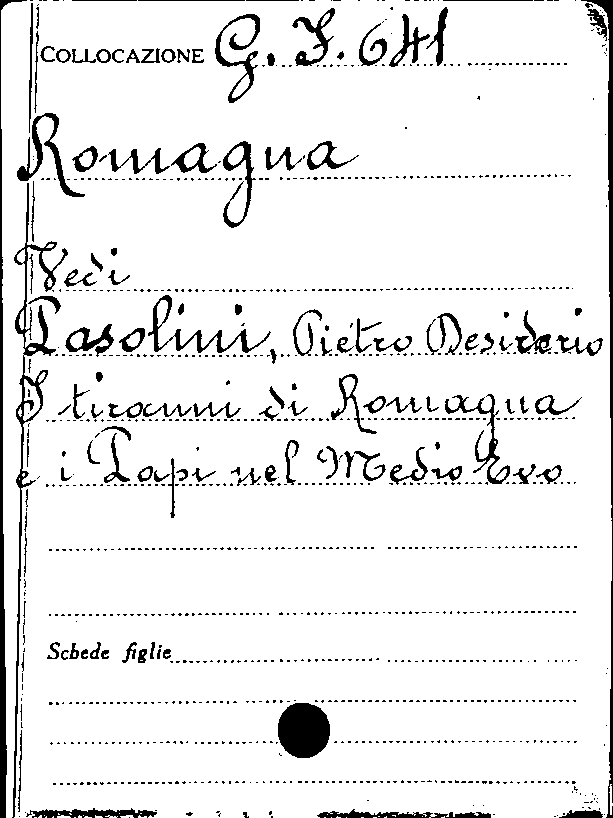 COLLOCAZIONE G. I. 641
Romagna
Vedi
Pasolini, Pietro Desiderio
I tiranni di Romagna
e i Papi nel Medio Evo
Schede figlie